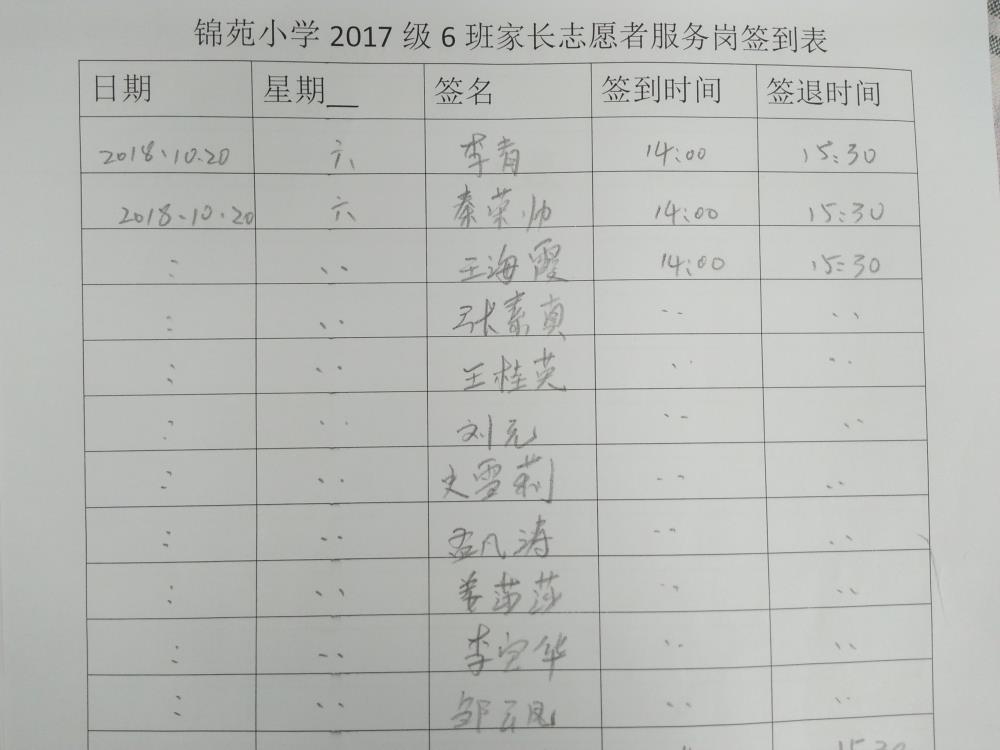 锦苑小学 2017 级 6 班家长志愿者服务岗签到表
日期 星期__ 签名 签到时间 签退时间
2018、10.20 六、 李青 14:00 15:30
2018.10.20 六 秦荣帅 14:00 15:30
: 、、 王海霞 14:00 15:30
: 、、 张素真 、、 、、
: 、、 王桂英 、、 、、
: 、、 刘元 、、 、、
: 、、 史雪莉 、、 、、
: 、、 孟凡涛 、、 、、
: 、、 姜莎莎 、、 、、
: 、、 李宝华 、、 、、
: 、、 邹云凤 、、 、、
15:30